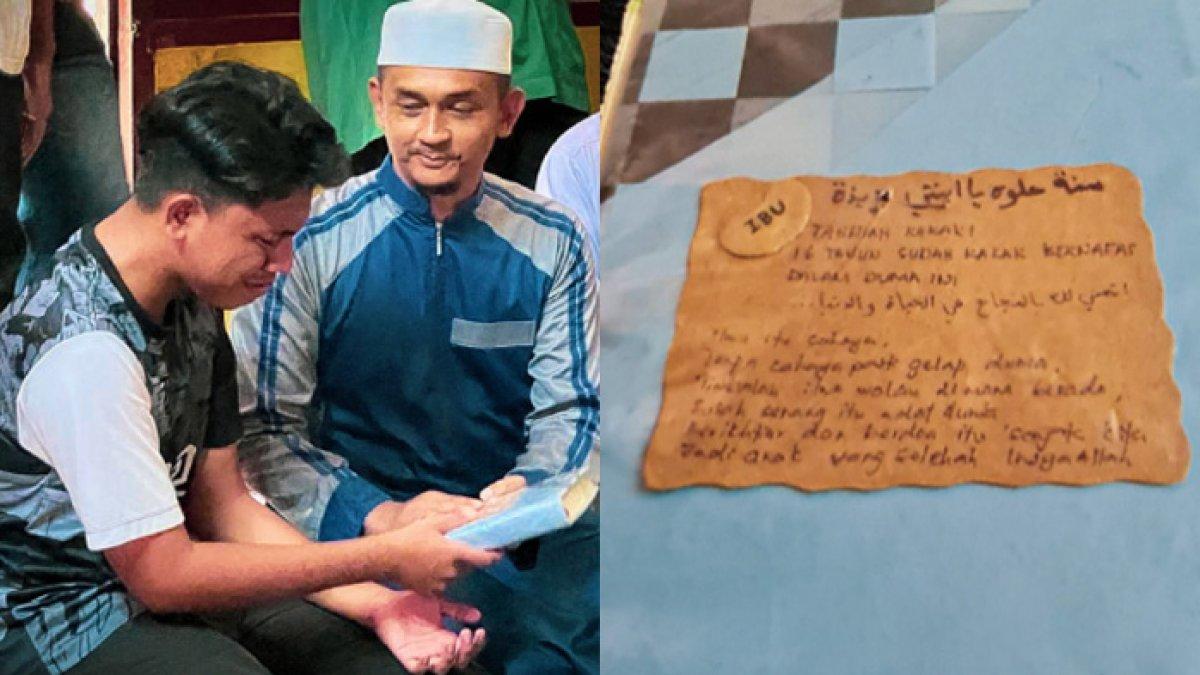 سنة حلوه يا ابنتي عزيزة
IBU
TAHNIAH KAKAK!
16 TAHUN SUDAH KAKAK BERNAFAS
DALAM DUNIA INI
اتمنى لك النجاح في الحياة والدنيا...
Ilmu itu cahaya,
cahaya gelap dunia.
ilmu walau di mana berada,
senang itu adat dunia
Berikhtiar dan berdoa itu
Jadi anak yang solehah InsyaAllah